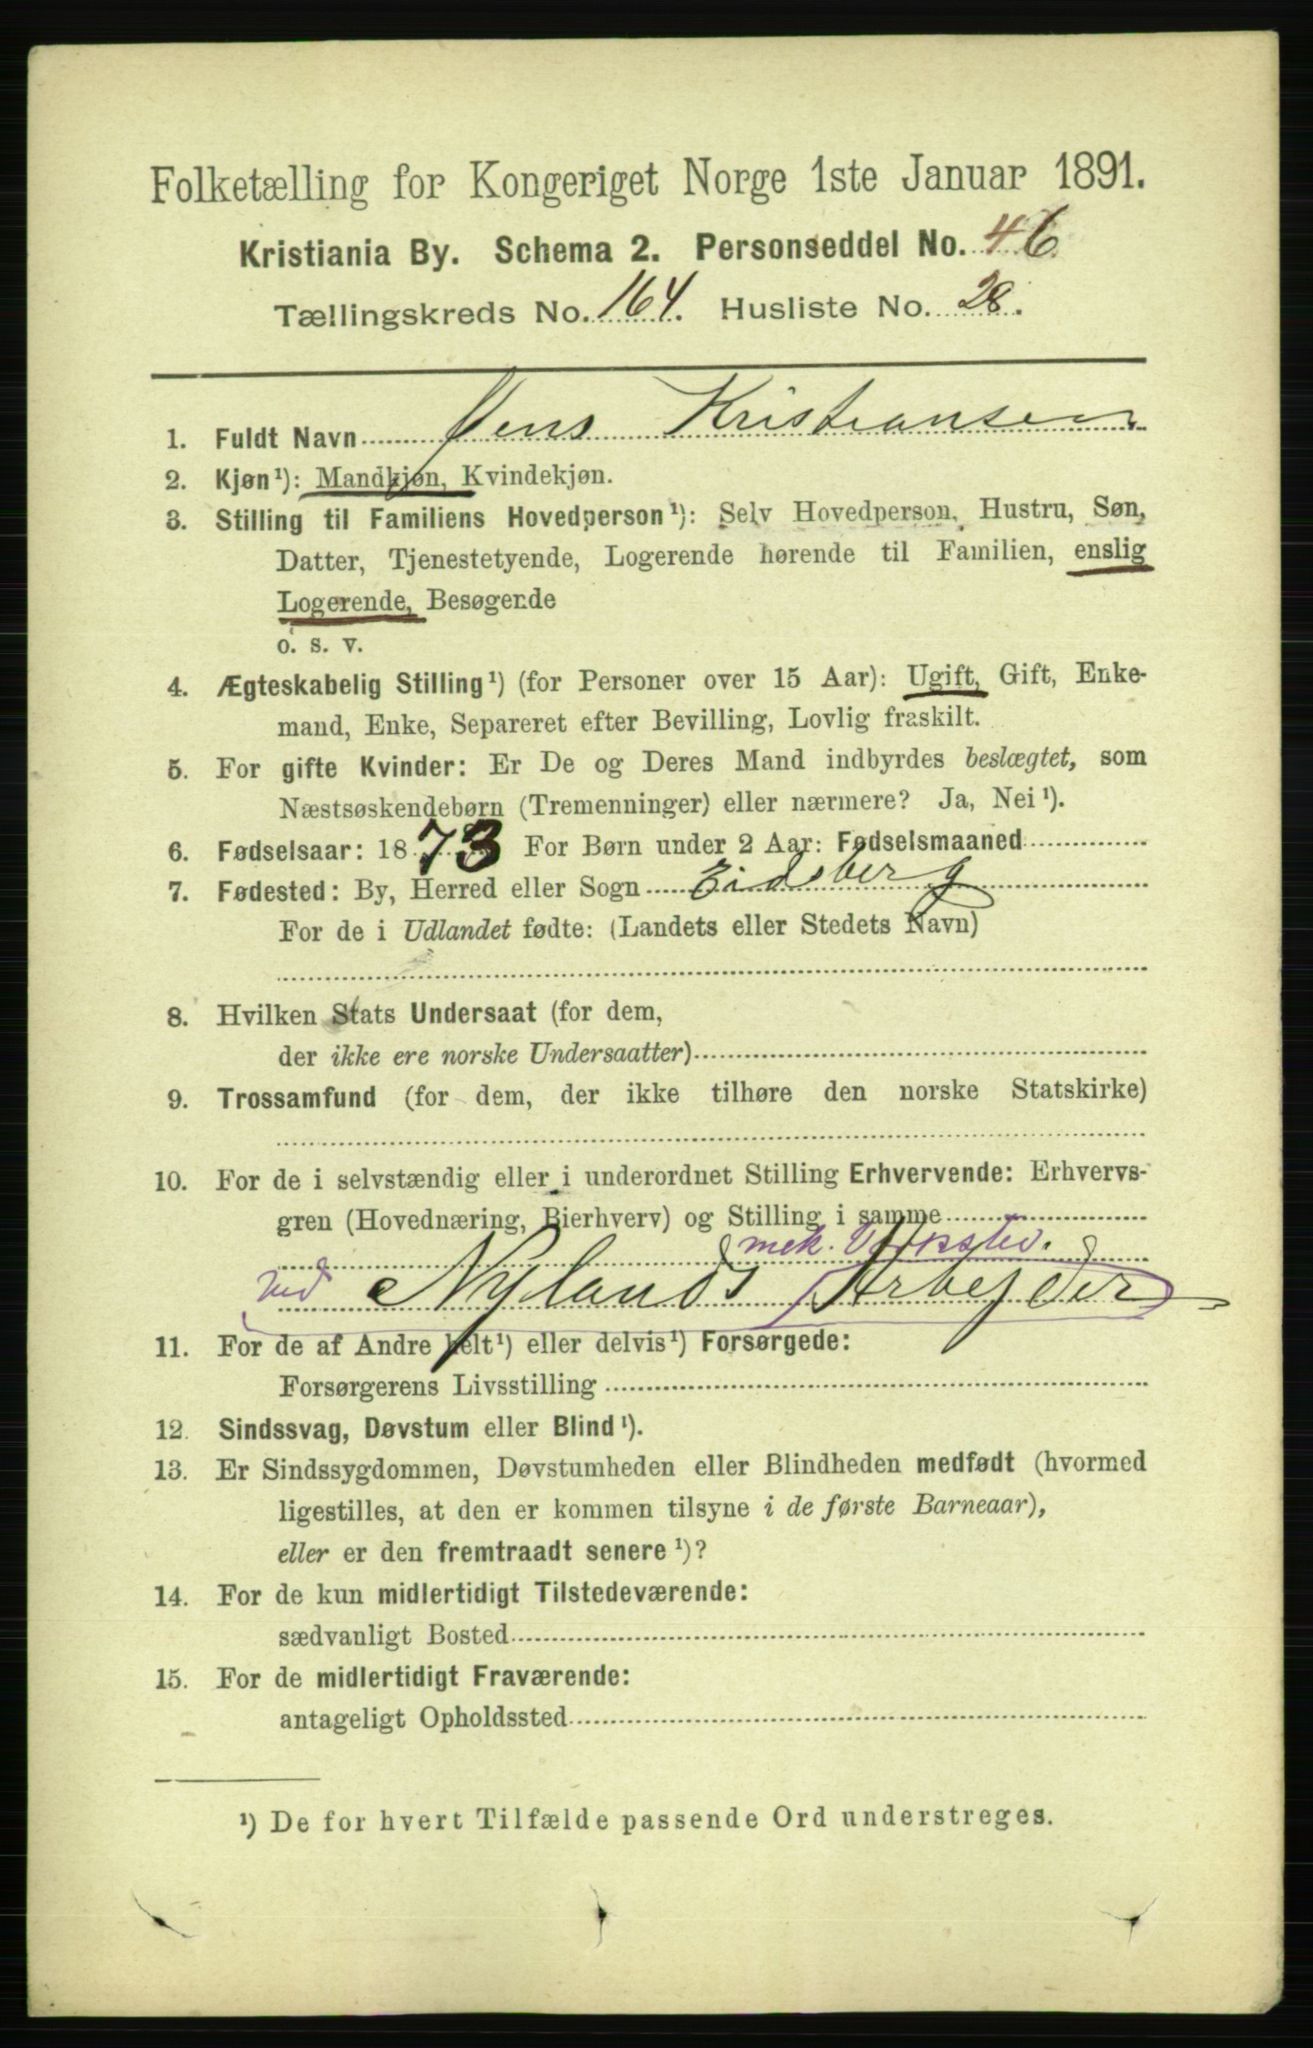 Folketælling for Kongeriget Norge 1ste Januar 1891.
Kristiania By. Schema 2. Personseddel No. 46
Tællingskreds No. 164. Husliste No. 28.
1. Fuldt Navn Jens Kristiansen
2. Kjøn¹): Mandkjøn, Kvindekjøn.
3. Stilling til Familiens Hovedperson¹): Selv Hovedperson, Hustru, Søn,
Datter, Tjenestetyende, Logerende hørende til Familien, enslig
Logerende, Besøgende
o. s. v.
4. Ægteskabelig Stilling¹) (for Personer over 15 Aar): Ugift, Gift, Enke-
mand, Enke, Separeret efter Bevilling, Lovlig fraskilt.
5. For gifte Kvinder: Er De og Deres Mand indbyrdes beslægtet, som
Næstsøskendebørn (Tremenninger) eller nærmere? Ja, Nei¹).
6. Fødselsaar: 1873 For Børn under 2 Aar: Fødselsmaaned
7. Fødested: By, Herred eller Sogn Eidsberg
For de i Udlandet fødte: (Landets eller Stedets Navn)
8. Hvilken Stats Undersaat (for dem,
der ikke ere norske Undersaatter)
9. Trossamfund (for dem, der ikke tilhøre den norske Statskirke)
10. For de i selvstændig eller i underordnet Stilling Erhvervende: Erhvervs-
gren (Hovednæring, Bierhverv) og Stilling i samme
mek. Værksted.
ved Nylands Arbejder
11. For de af Andre helt¹) eller delvis¹) Forsørgede:
Forsørgerens Livsstilling
12. Sindssvag, Døvstum eller Blind¹).
13. Er Sindssygdommen, Døvstumheden eller Blindheden medfødt (hvormed
ligestilles, at den er kommen tilsyne i de første Barneaar),
eller er den fremtraadt senere¹)?
14. For de kun midlertidigt Tilstedeværende:
sædvanligt Bosted
15. For de midlertidigt Fraværende:
antageligt Opholdssted
¹) De for hvert Tilfælde passende Ord understreges.